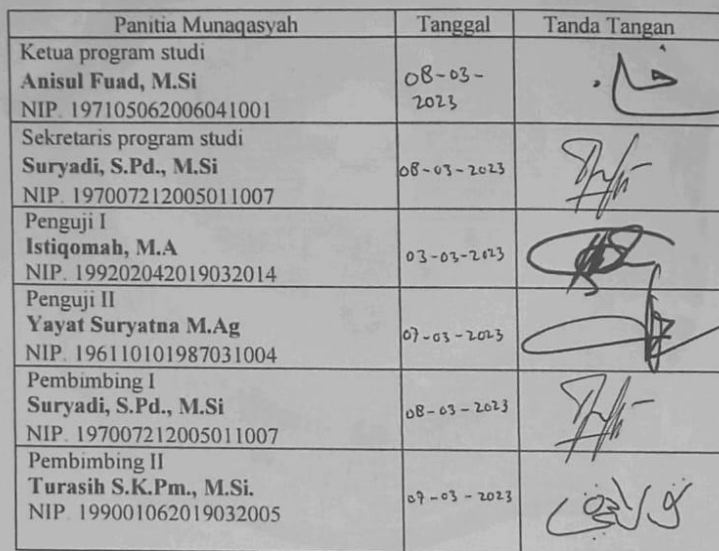 Panitia Munaqasyah Tanggal Tanda Tangan
Ketua program studi
Anisul Fuad, M.Si
NIP. 197105062006041001
08-03-
2023
Sekretaris program studi
Suryadi, S.Pd., M.Si
NIP. 197007212005011007
08-03-2023
Penguji I
Istiqomah, M.A
NIP. 199202042019032014
03-03-2023
Penguji II
Yayat Suryatna M.Ag
NIP. 196110101987031004
07-03-2023
Pembimbing I
Suryadi, S.Pd., M.Si
NIP. 197007212005011007
08-03-2023
Pembimbing II
Turasih S.K.Pm., M.Si.
NIP. 199001062019032005